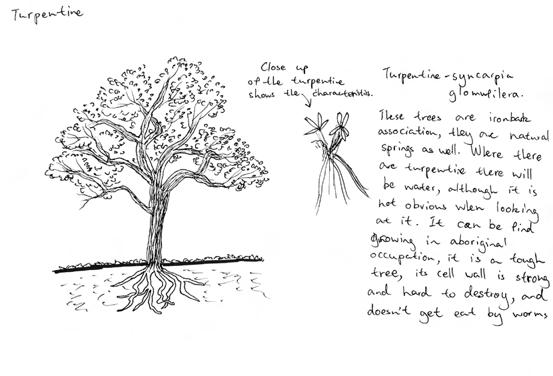 Turpentine
Close up
of the turpentine
shows the characteristics.
Turpentine - syncarpia
glomulifera.
These trees are ironbark
association, they are natural
springs as well. Where there
are turpentine there will
be water, although it is
not obvious when looking
at it. It can be find
growing in aboriginal
occupation, it is a tough
tree, its cell wall is strong
and hard to destroy, and
doesn't get eat by worms